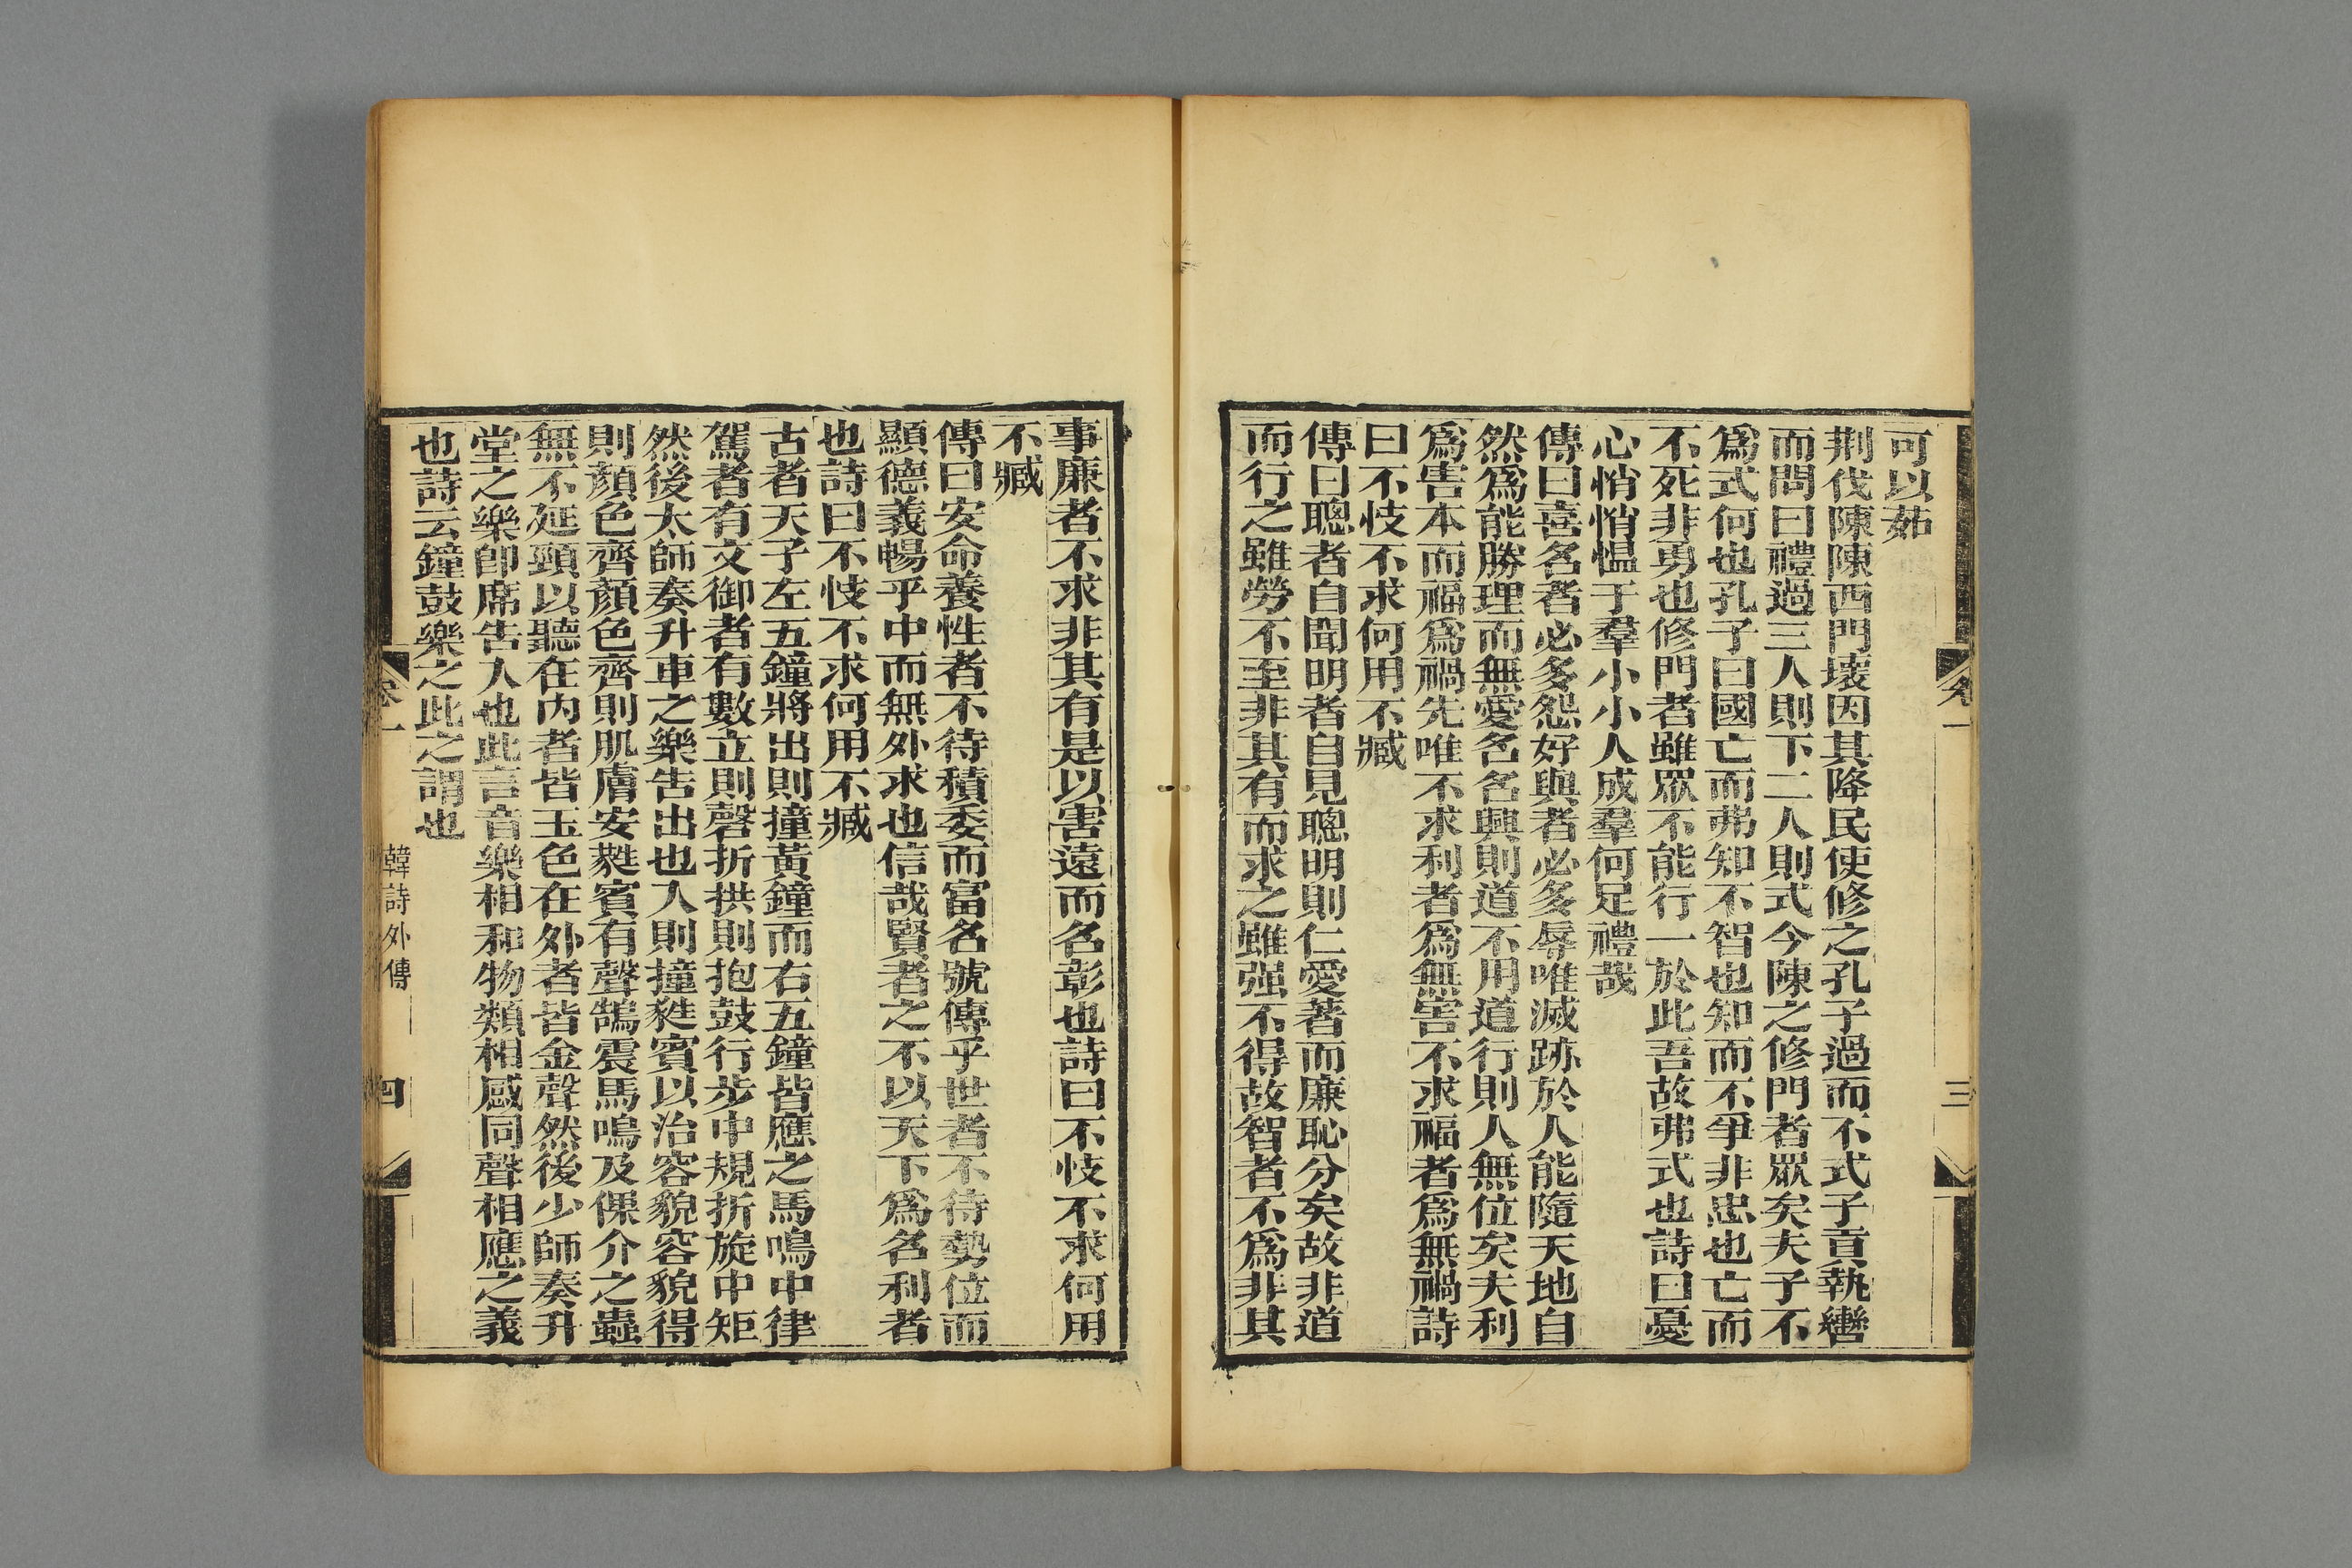 卷一
三
可以茹
荆伐陳陳西門壞因其降民使修之孔子過而不式子貢執轡
而問曰禮過三人則下二人則式今陳之修門者眾矣夫子不
爲式何也孔子曰國亡而弗知不智也知而不爭非忠也亡而
不死非勇也修門者雖眾不能行一於此吾故弗式也詩曰憂
心悄悄慍于羣小小人成羣何足禮哉
傳曰喜名者必多怨好與者必多辱唯滅跡於人能隨天地自
然爲能勝理而無愛名名興則道不用道行則人無位矣夫利
爲害本而福爲禍先唯不求利者爲無害不求福者爲無禍詩
曰不忮不求何用不臧
傳曰聰者自聞明者自見聰明則仁愛著而廉恥分矣故非道
而行之雖勞不至非其有而求之雖强不得故智者不爲非其
事廉者不求非其有是以害遠而名彰也詩曰不忮不求何用
不臧
傳曰安命養性者不待積委而富名號傳乎世者不待勢位而
顯德義暢乎中而無外求也信哉賢者之不以天下爲名利者
也詩曰不忮不求何用不臧
古者天子左五鐘將出則撞黃鐘而右五鐘皆應之馬鳴中律
駕者有文御者有數立則磬折拱則抱鼓行步中規折旋中矩
然後太師奏升車之樂告出也入則撞蕤賓以治容貌容貌得
則顏色齊顏色齊則肌膚安蕤賓有聲鵠震馬鳴及倮介之蟲
無不延頸以聽在內者皆玉色在外者皆金聲然後少師奏升
堂之樂卽席告入也此言音樂相和物類相感同聲相應之義
也詩云鐘鼓樂之此之謂也
卷一
韓詩外傳
四